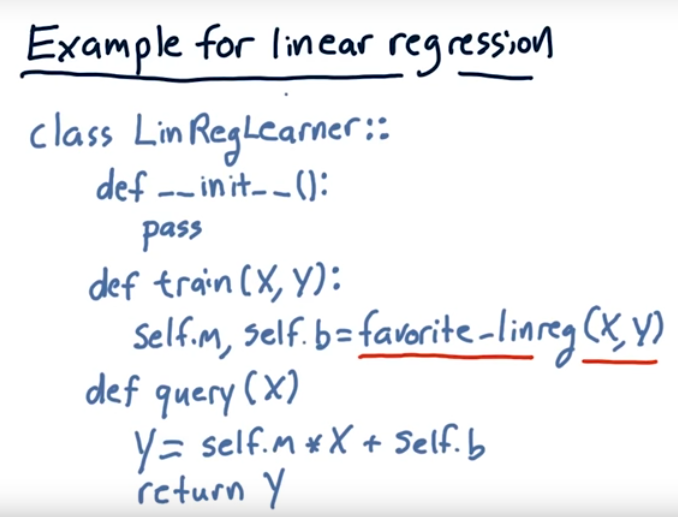 Example for linear regression
class LinRegLearner::
def __init__():
pass
def train(X, Y):
self.m, self.b = favorite_linreg(X, Y)
def query(X)
Y = self.m * X + self.b
return Y